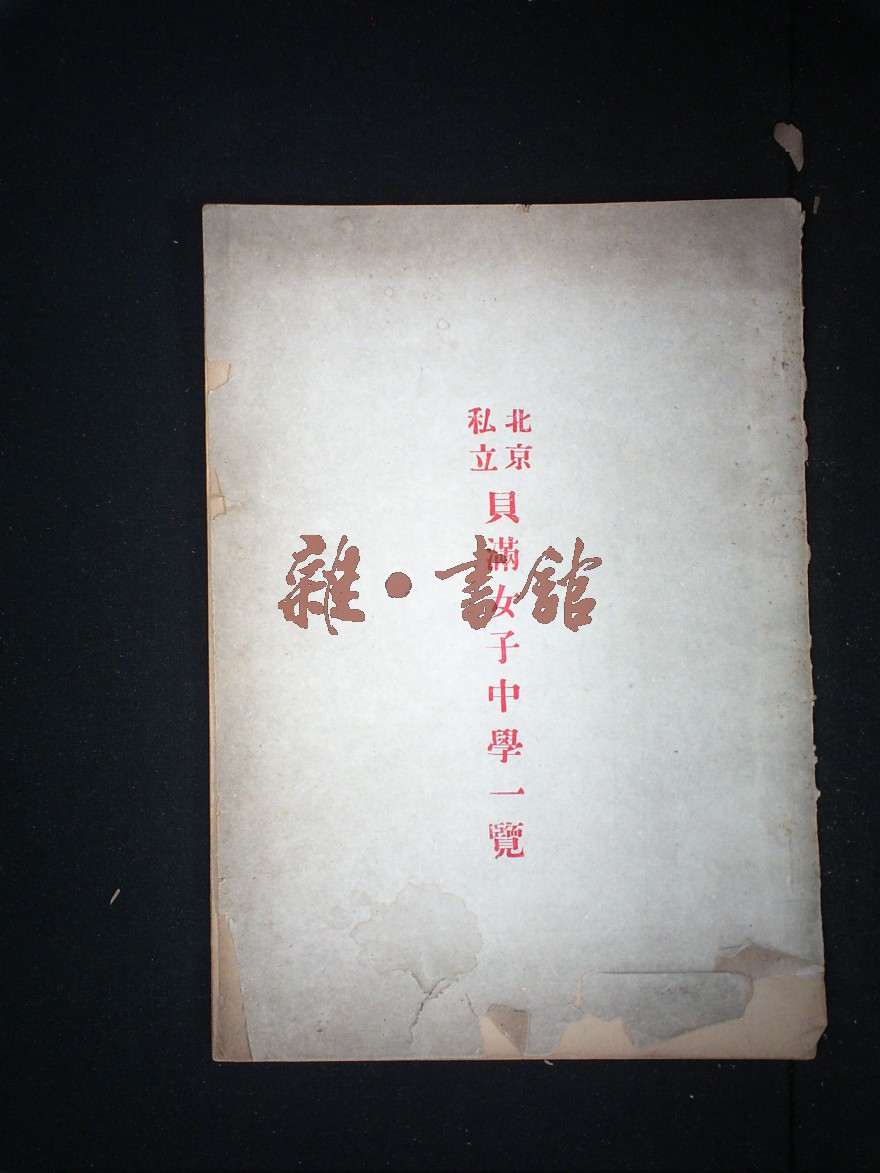 北京
私立
貝滿女子中學一覽
雜·書館